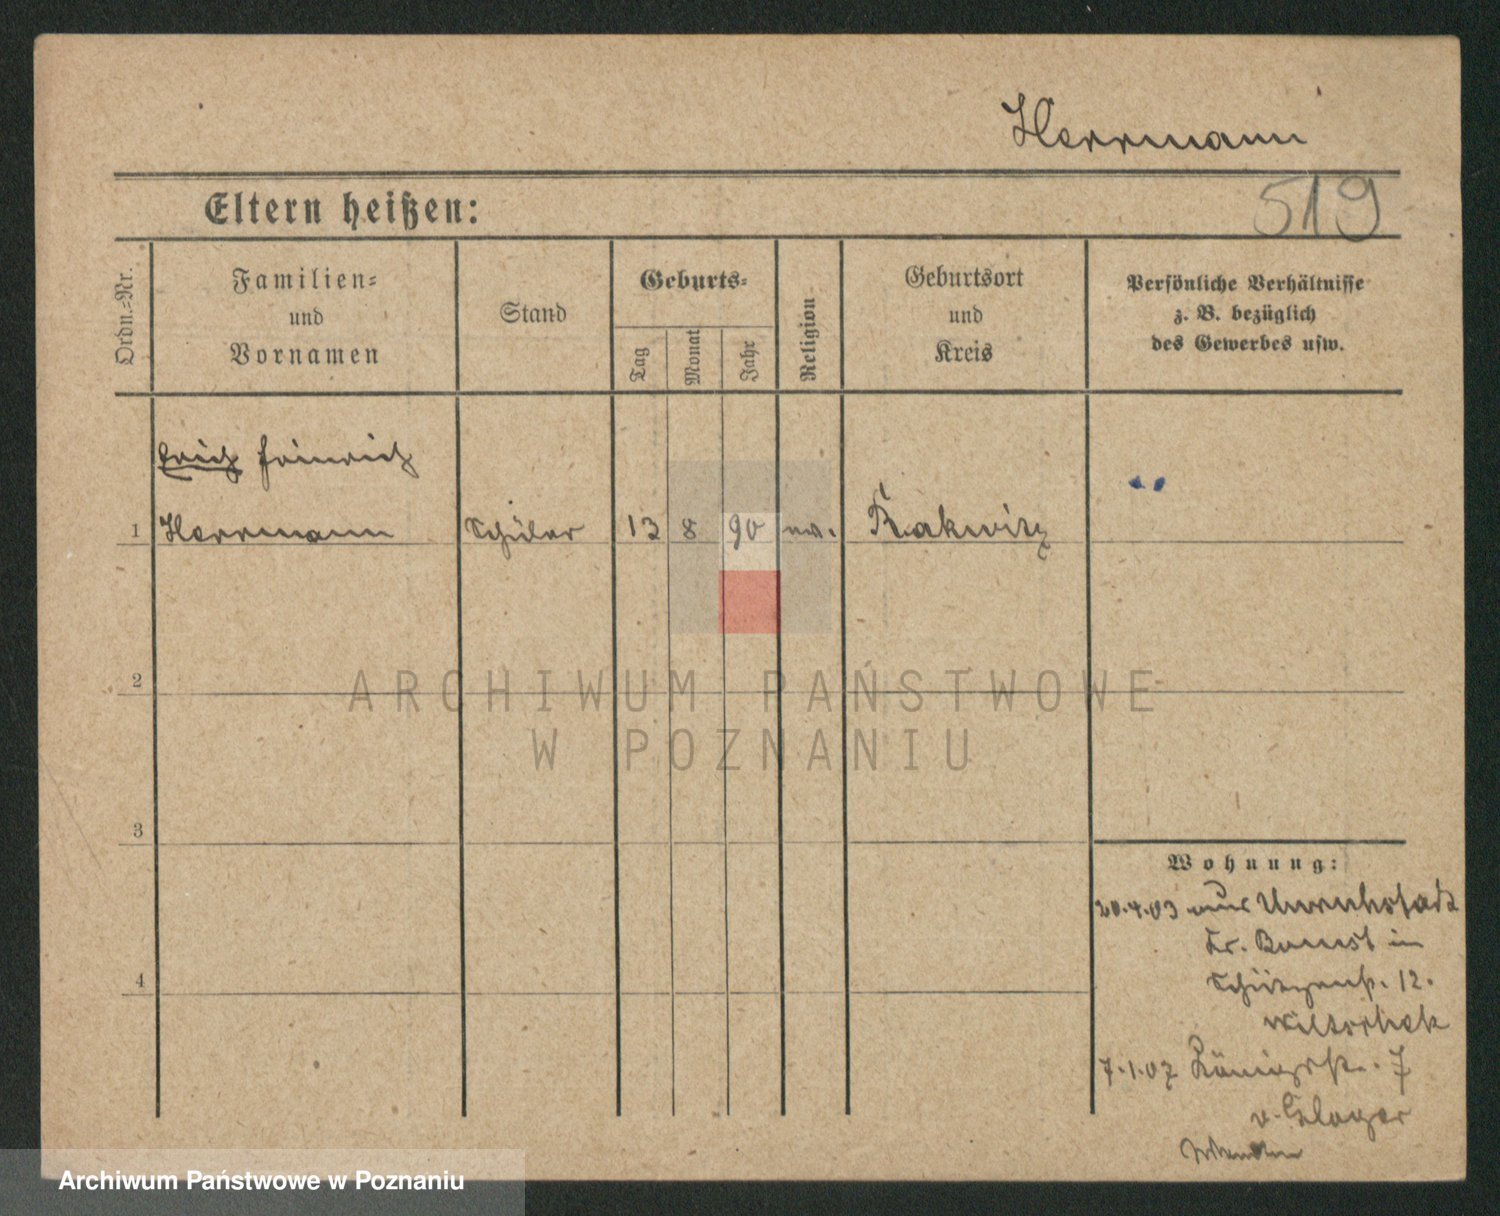 Herrmann
519
Eltern heißen:
Ordn.-Nr.
Familien-
und
Vornamen
Stand
Geburts-
Tag
Monat
Jahr
Religion
Geburtsort
und
Kreis
Persönliche Verhältnisse
z. B. bezüglich
des Gewerbes usw.
Erich Heinrich
1 Herrmann Schüler 13 8 90 ev. Rakwitz
2
ARCHIWUM PAŃSTWOWE
W POZNANIU
3
Wohnung:
20.4.03 aus Unruhstadt
Kr. Bomst in
4
Schützenstr. 12.
7.1.07 Königsstr. 7
v. Gloger
Archiwum Państwowe w Poznaniu